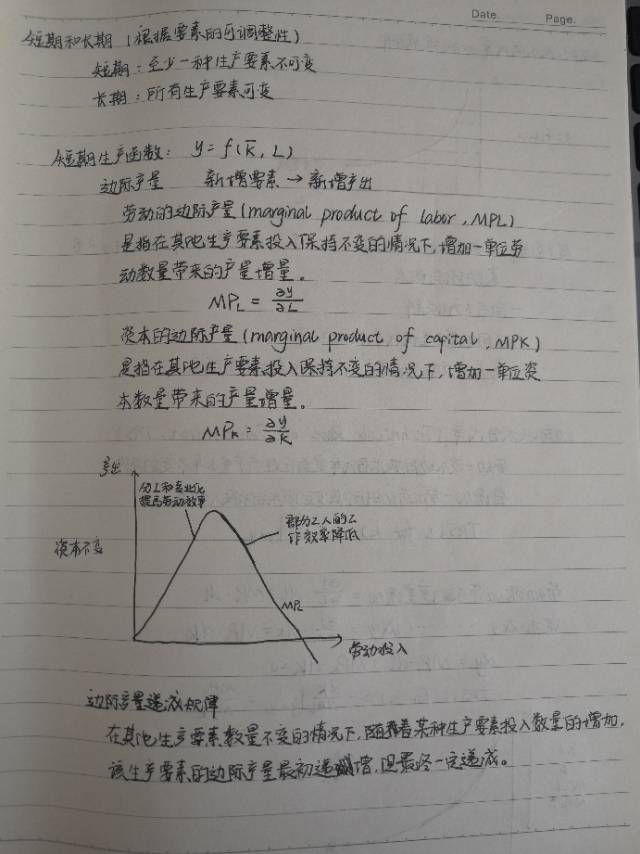 Date. Page.
短期和长期(根据要素的可调整性)
短期:至少一种生产要素不可变
长期:所有生产要素可变
短期生产函数: y=f(K̅, L)
边际产量 新增要素 → 新增产出
劳动的边际产量(marginal product of labor, MPL)
是指在其他生产要素投入保持不变的情况下,增加一单位劳
动数量带来的产量增量。
MPL = ∂y/∂L
资本的边际产量(marginal product of capital, MPK)
是指在其他生产要素投入保持不变的情况下,增加一单位资
本数量带来的产量增量。
MPK = ∂y/∂K
产出
分工和专业化
提高劳动效率
部分工人的工
作效率降低
资本不变
MPL
劳动投入
边际产量递减规律
在其他生产要素数量不变的情况下,随着某种生产要素投入数量的增加,
该生产要素的边际产量最初递增,但最终一定递减。